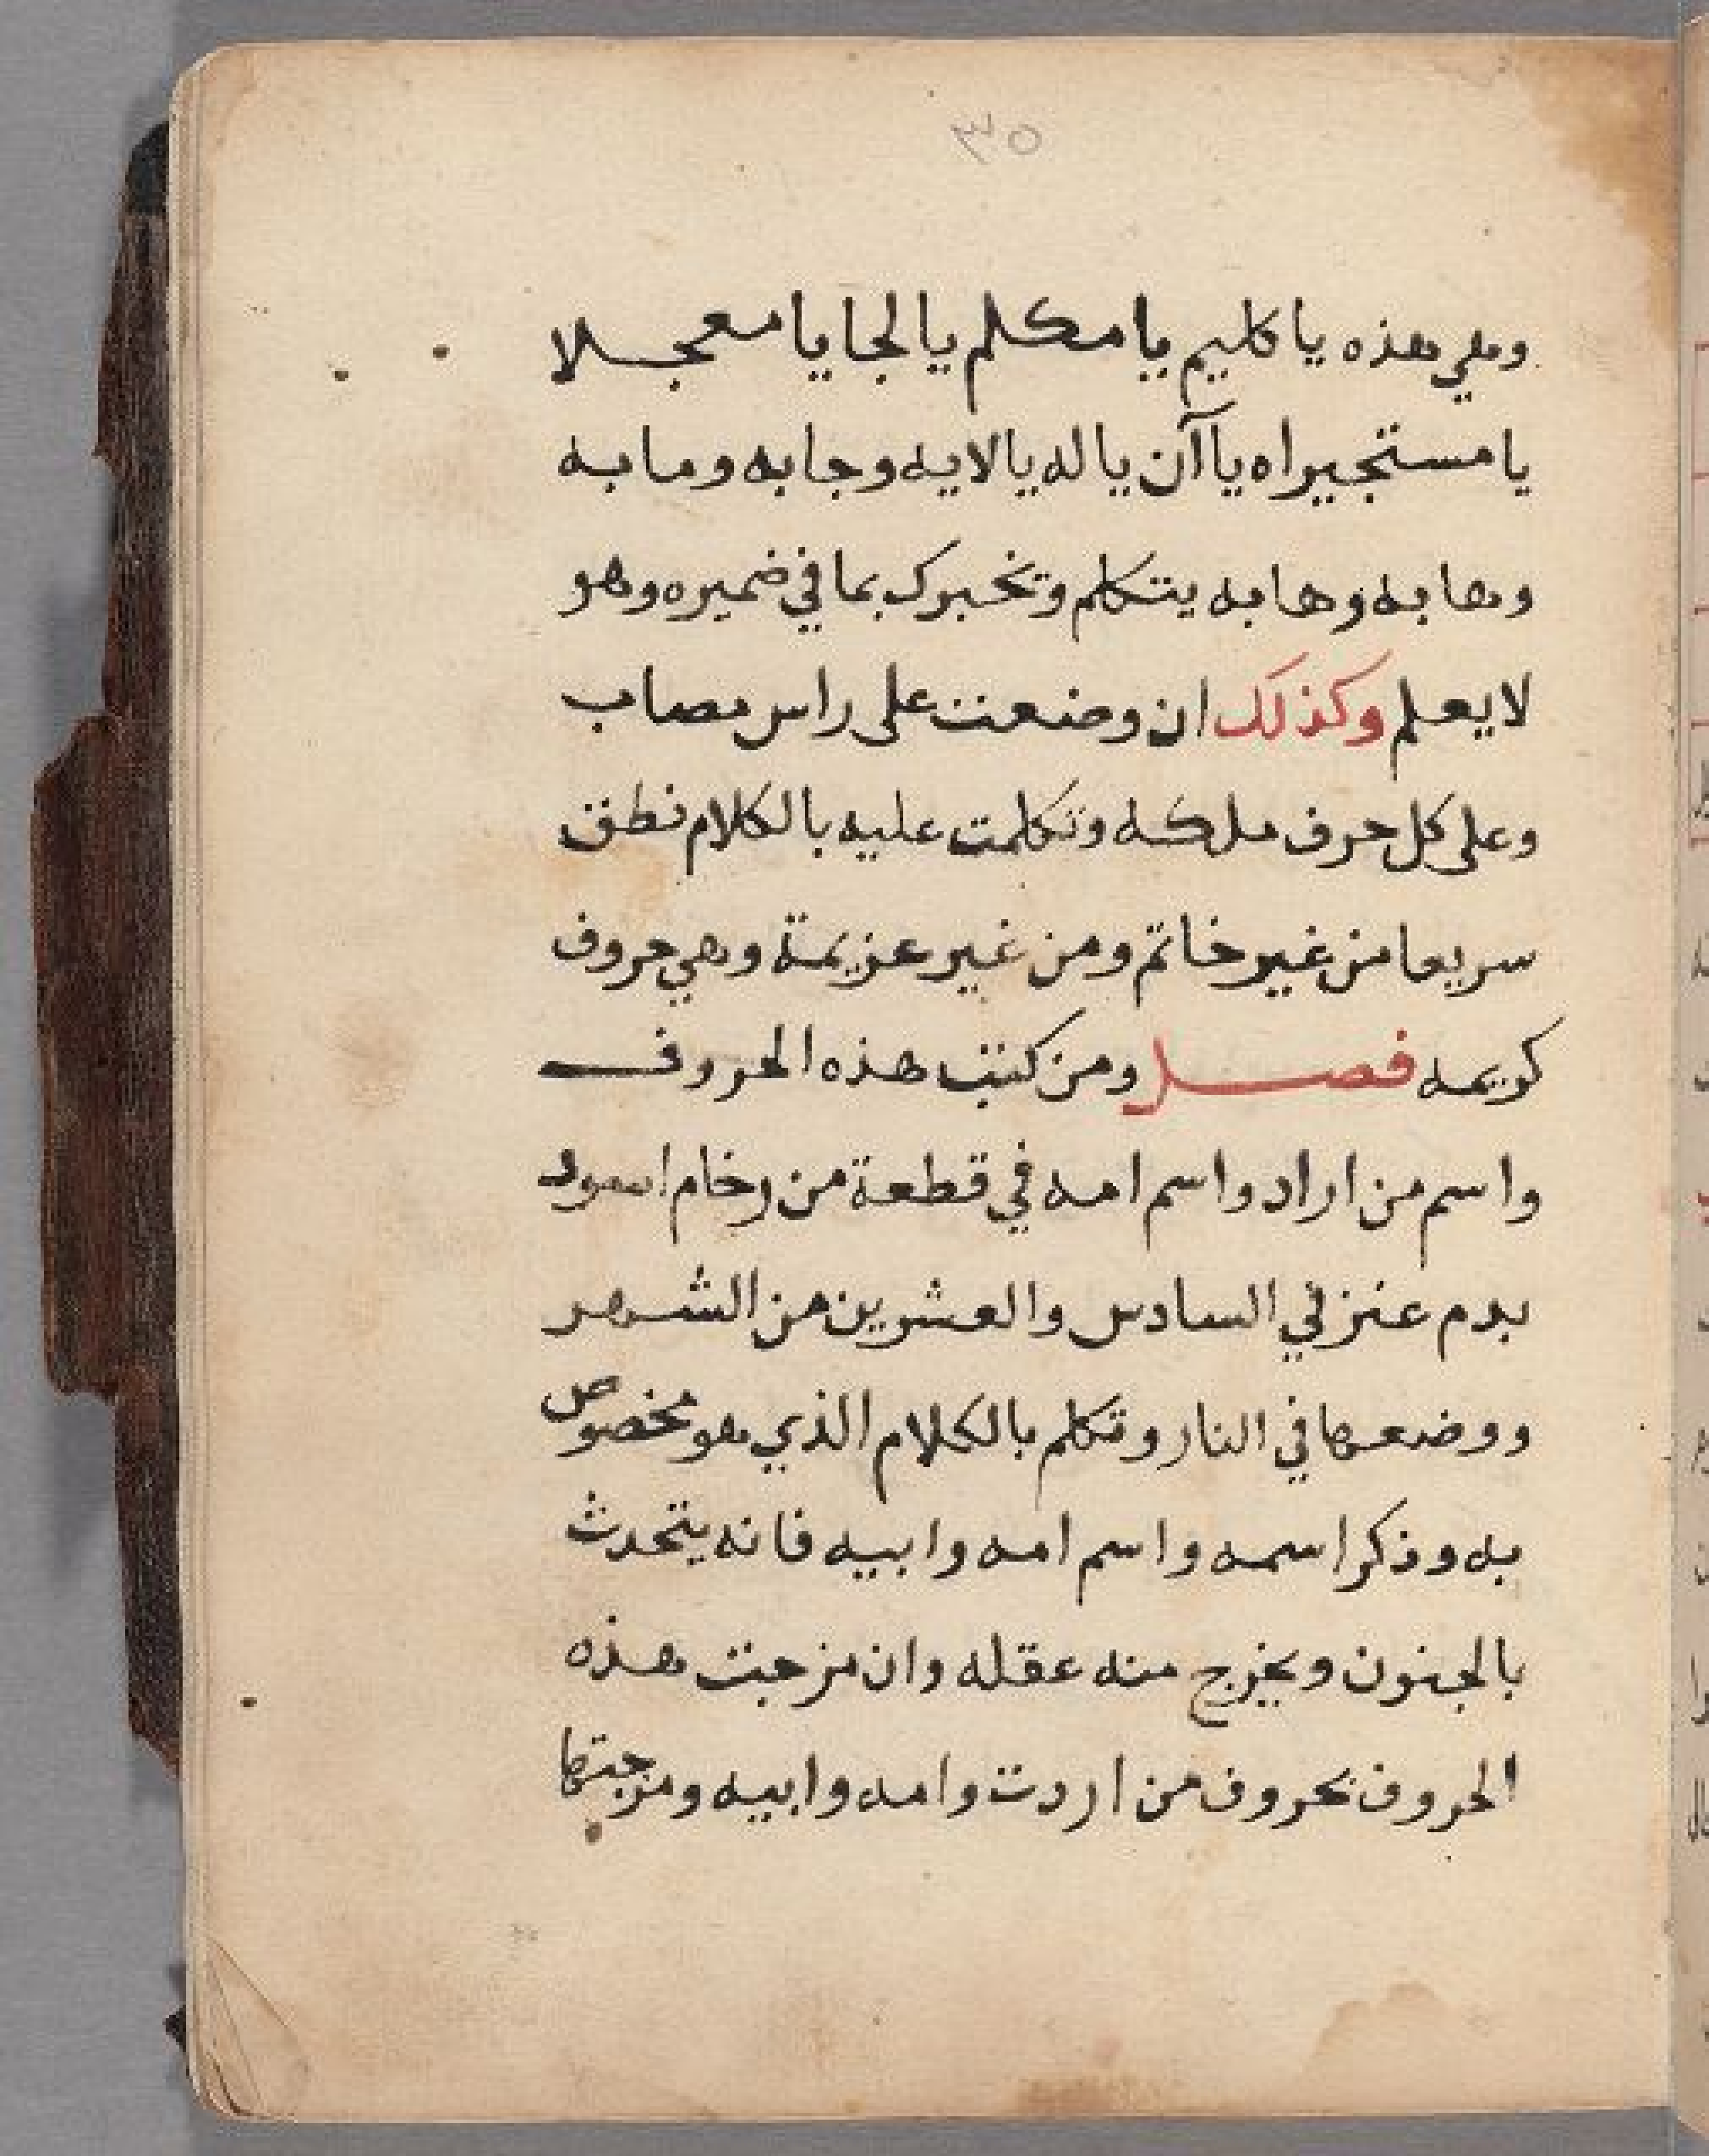 ٣٥
وهي هذه يا كليم يا مكلم يا لجا يا معجلا
يا مستجيراه يا آن يا له يا لايه وجابه ومابه
وهابه وهابه يتكلم وتخبرك بما في ضميره وهو
لا يعلم وكذلك ان وضعت على راس مصاب
وعلى كل حرف ملكه وتكلمت عليه بالكلام نطق
سريعا من غير خاتم ومن غير عزيمة وهي حروف
كريمه فصل ومن كتب هذه الحروف
واسم من اراد واسم امه في قطعة من رخام اسود
بدم عنز في السادس والعشرين من الشهر
ووضعها في النار وتكلم بالكلام الذي هو مخصوص
به وذكر اسمه واسم امه وابيه فانه يتحدث
بالجنون ويخرج منه عقله وان مزجت هذه
الحروف بحروف من اردت وامه وابيه ومزجتها